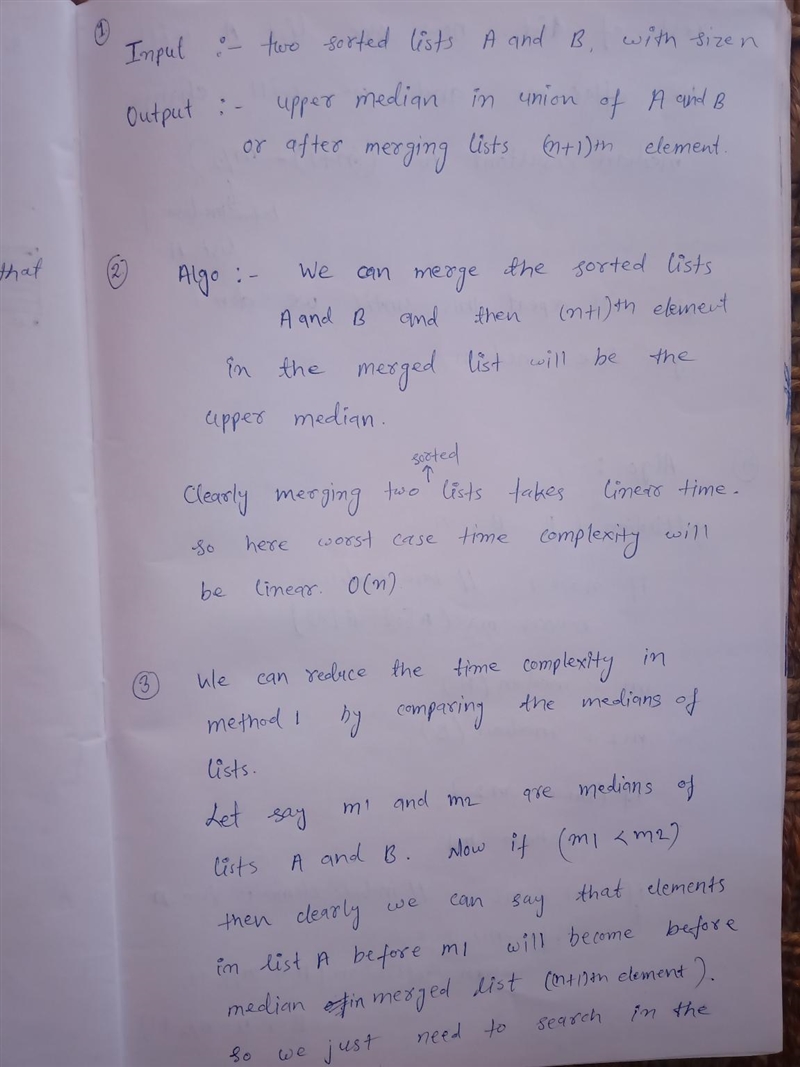 ①
Input :- two sorted lists A and B, with size n
Output :- upper median in union of A and B
or after merging lists (n+1)th element.
that
② Algo :- We can merge the sorted lists
A and B and then (n+1)th element
in the merged list will be the
upper median.
sorted
Clearly merging two ↑ lists takes linear time.
so here worst case time complexity will
be linear. O(n)
③ We can reduce the time complexity in
method 1 by comparing the medians of
lists.
Let say m1 and m2 are medians of
lists A and B. Now if (m1 < m2)
then clearly we can say that elements
in list A before m1 will become before
median in merged list (n+1)th element).
so we just need to search in the